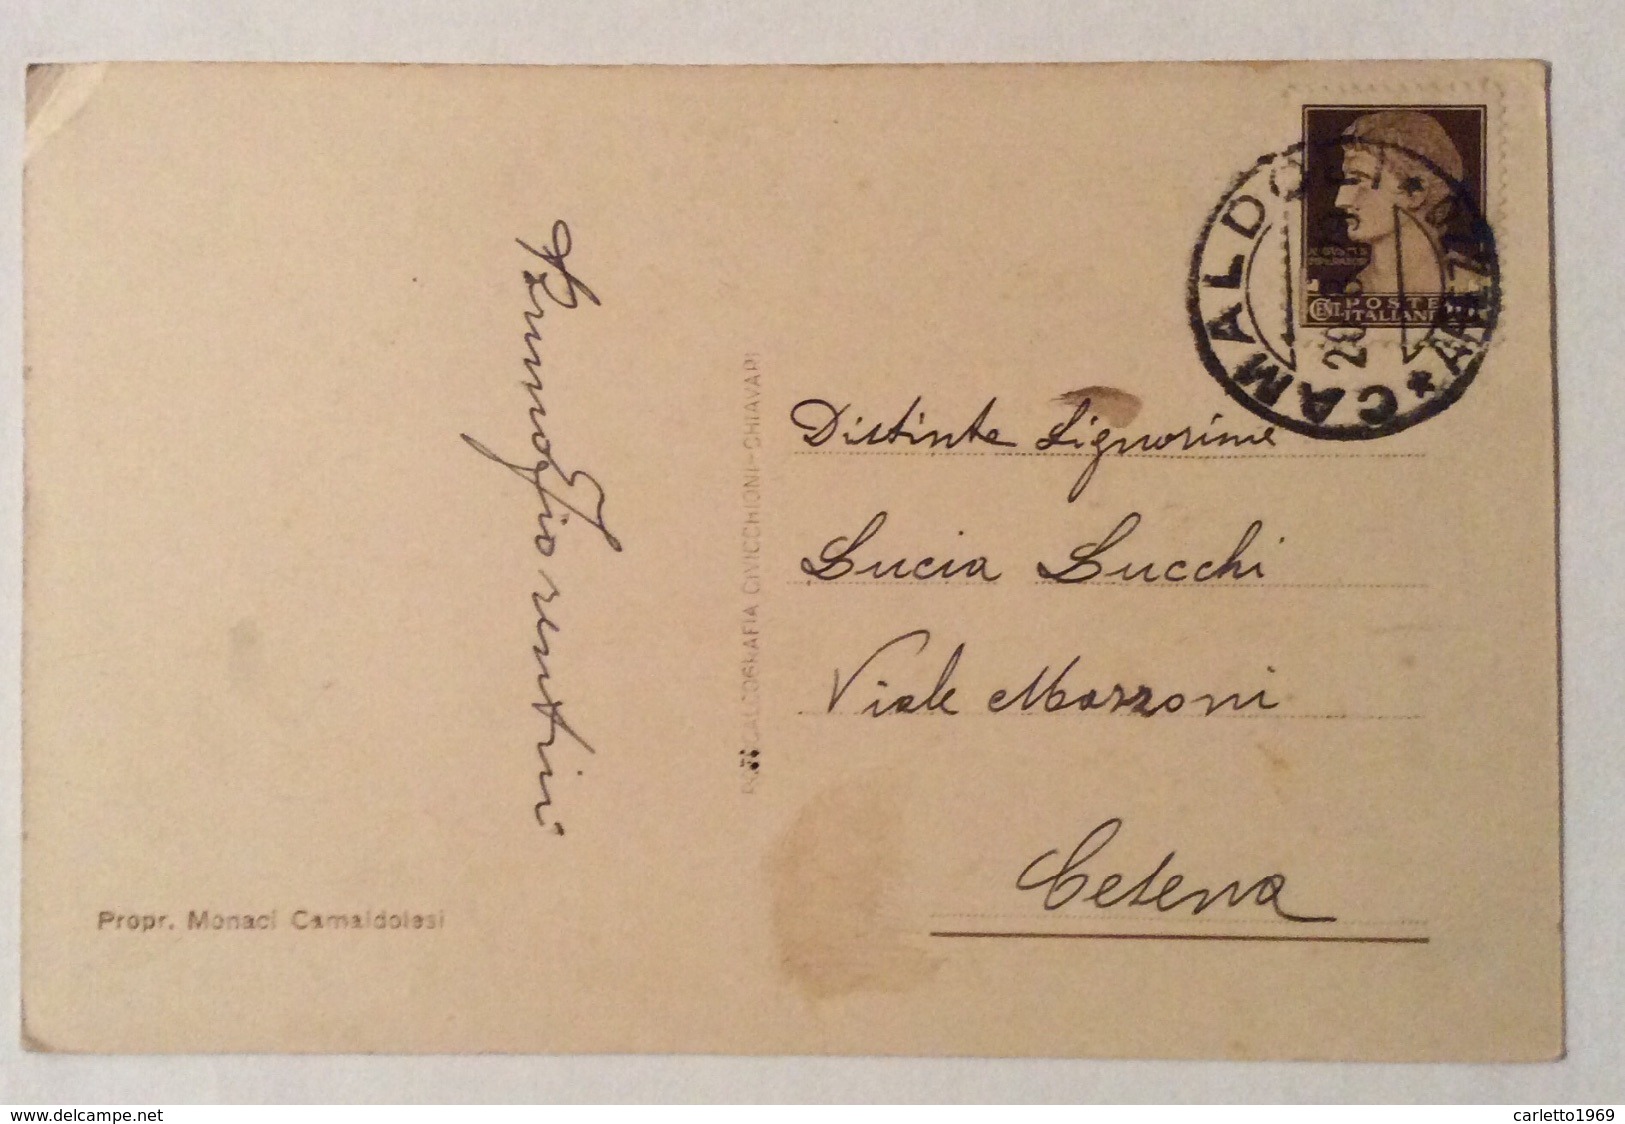 CAMALDOLI
* AREZZO *
POSTE
ITALIANE
CENT.
Distinte Signorine
Lucia Lucchi
Viale Mazzoni
Cesena
CALCOGRAFIA CIVICCHIONI-CHIAVARI
Propr. Monaci Camaldolesi
www.delcampe.net
carletto1969